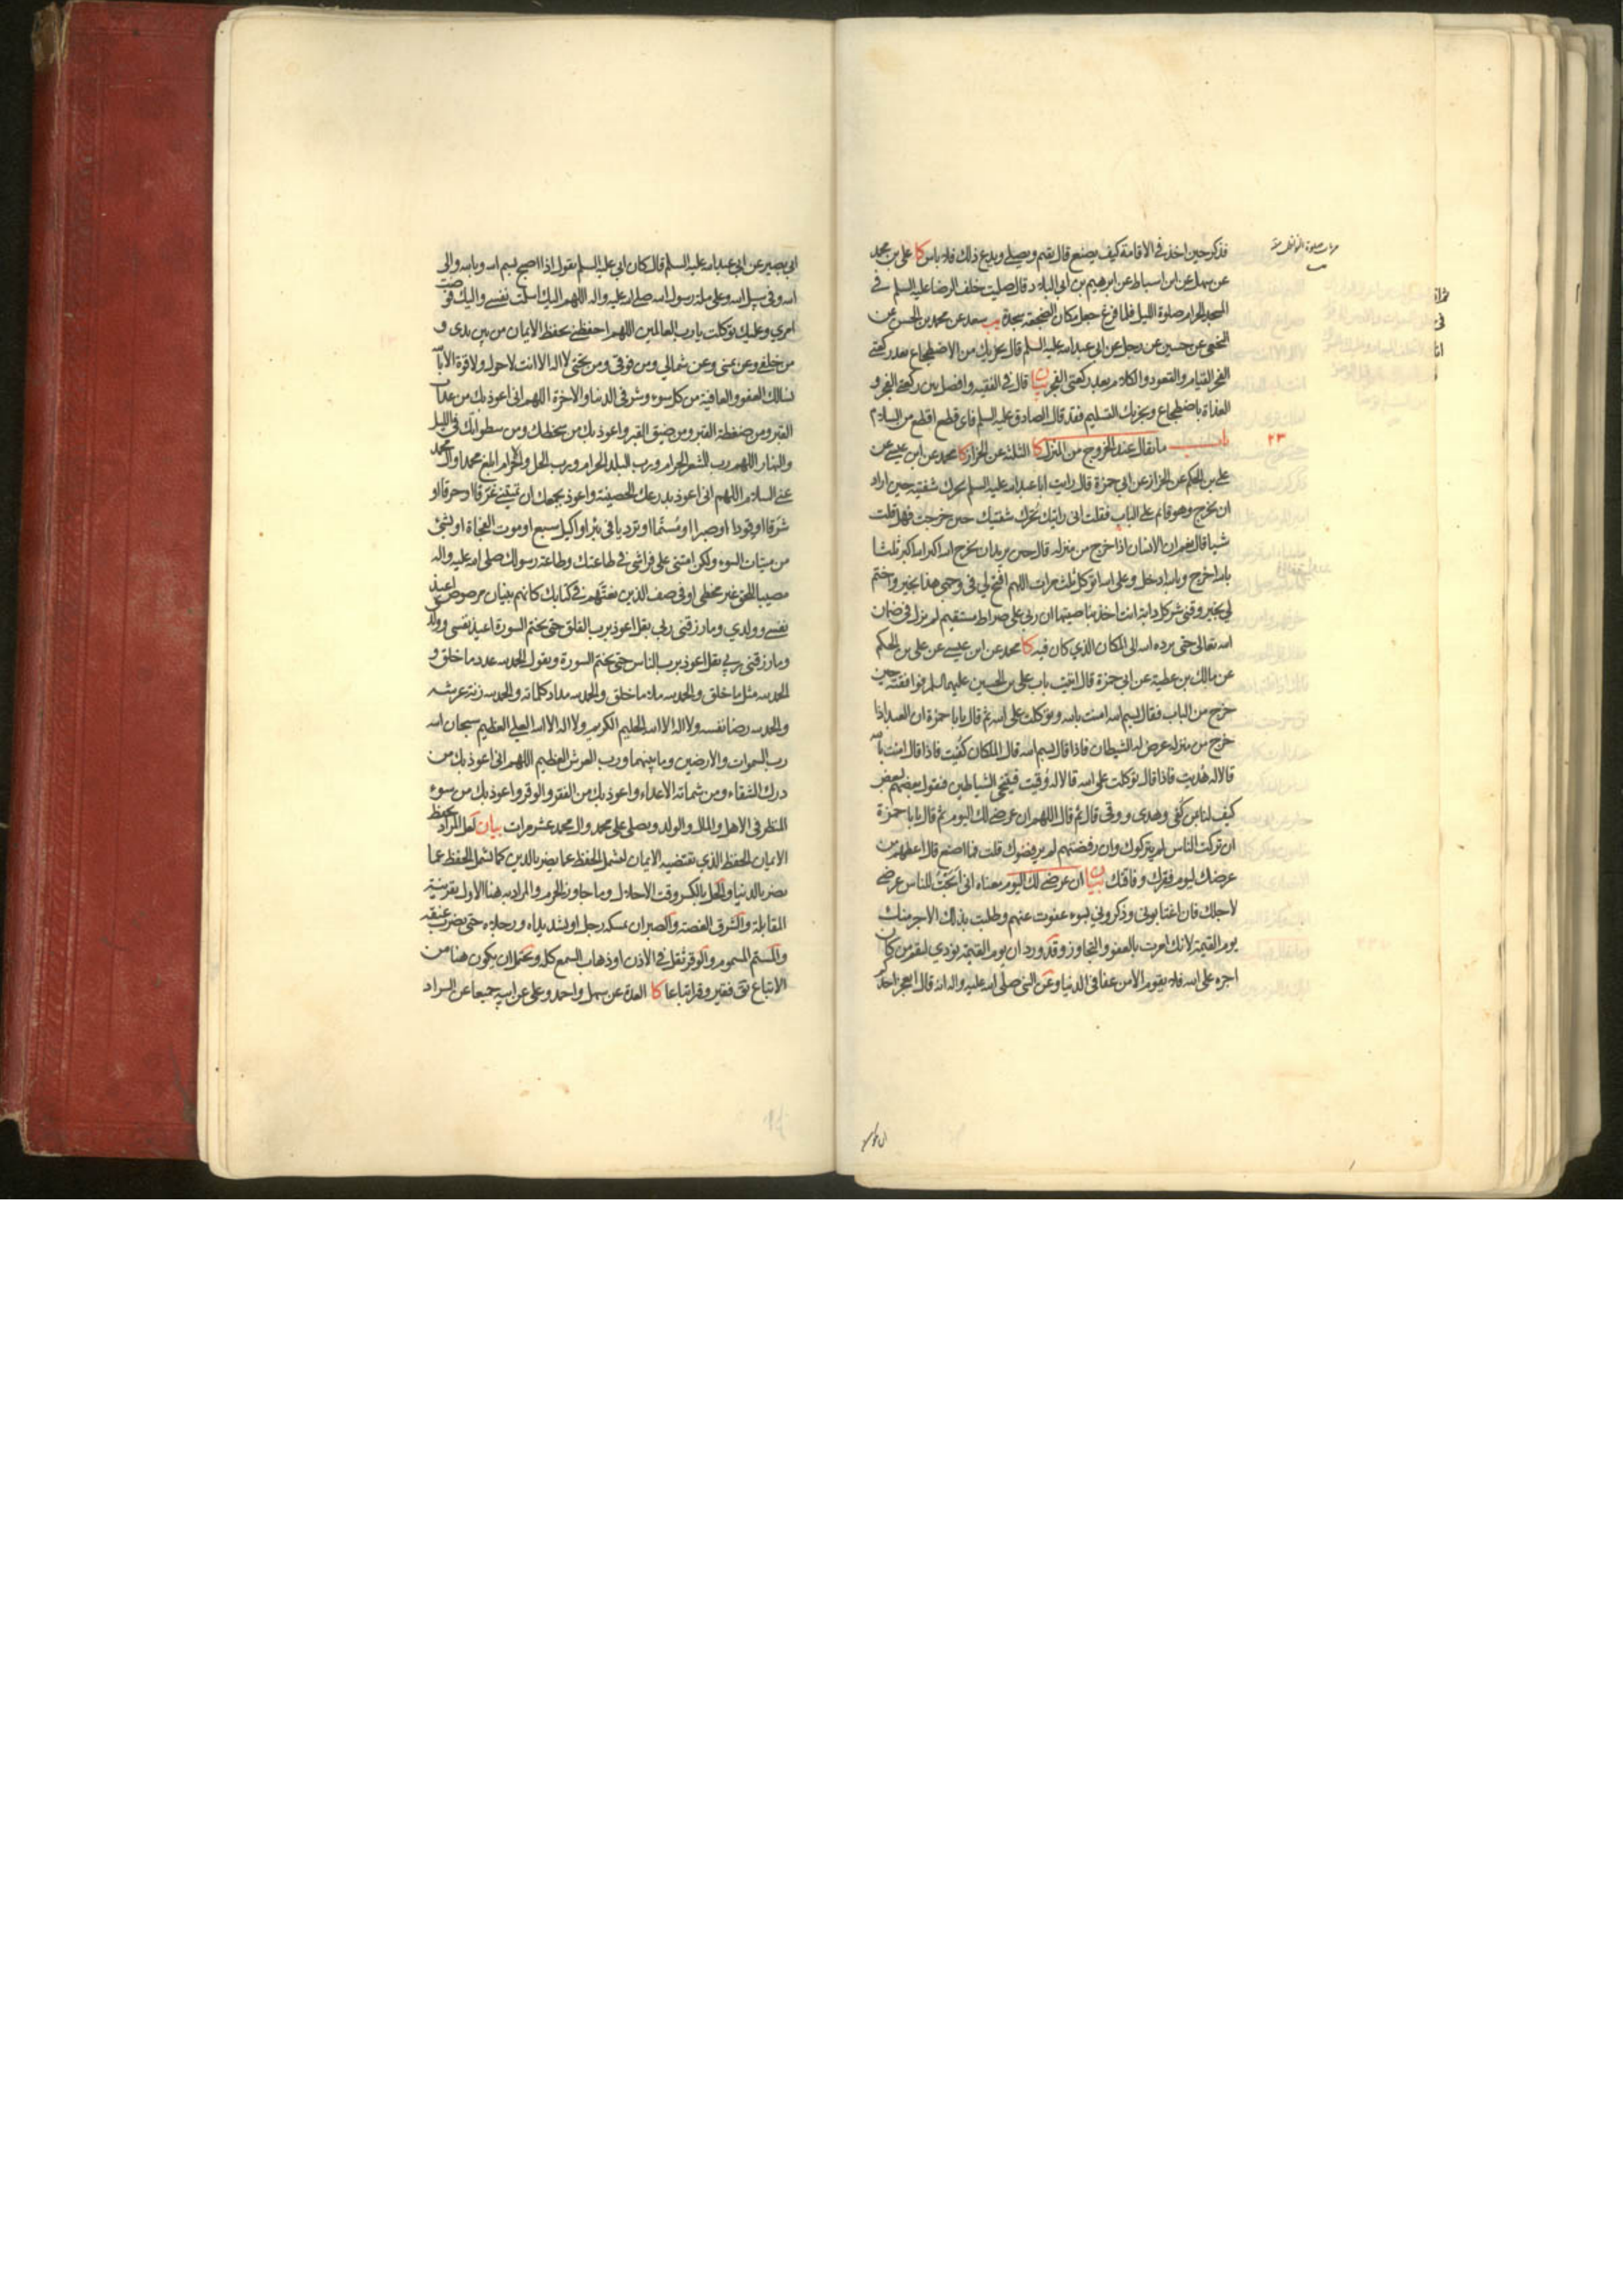 فذكر حين اخذ في الاقامة كيف يصنع قال يقيم ويصلي ويدع ذلك فلا باس كا علي بن محمد
عن سهل عن ابن اسباط عن ابرهيم بن ابي البلاد قال صليت خلف الرضا عليه السلم في
المسجد الحرام صلوة الليل فلما فرغ جعل مكان الضجعة سجدة يب سعد عن محمد بن الحسن عن
النخعي عن حسين عن رجل عن ابي عبد الله عليه السلم قال يجزيك من الاضطجاع بعد ركعتي
الفجر القيام والقعود والكلام بعد ركعتي الفجر بيان قال في الفقيه وافصل بين ركعتي الفجر و
الغداة باضطجاع ويجزيك التسليم فقد قال الصادق عليه السلم فاي قطع اقطع من السلام
٢٣
باب ما يقال عند الخروج من المنزل كا الثلثة عن الخزاز كا محمد عن ابن عيسى عن
علي بن الحكم عن الخزاز عن ابي حمزة قال رايت ابا عبد الله عليه السلم يحرك شفتيه حين اراد
ان يخرج وهو قائم على الباب فقلت اني رايتك تحرك شفتيك حين خرجت فهل قلت
شيا قال نعم ان الانسان اذا خرج من منزله قال حين يريد ان يخرج الله اكبر الله اكبر ثلثا
بالله اخرج وبالله ادخل وعلى الله اتوكل ثلث مرات اللهم افتح لي في وجهي هذا بخير واختم
لي بخير وقني شر كل دابة انت اخذ بناصيتها ان ربي على صراط مستقيم لم يزل في ضمان
الله تعالى حتى يرده الله الى المكان الذي كان فيه كا محمد عن ابن عيسى عن علي بن الحكم
عن مالك بن عطية عن ابي حمزة قال اتيت باب علي بن الحسين عليهما السلم فوافقته حين
خرج من الباب فقال بسم الله امنت بالله وتوكلت على الله ثم قال يا با حمزة ان العبد اذا
خرج من منزله عرض له الشيطان فاذا قال بسم الله قال الملكان كفيت فاذا قال امنت بالله
قالا له هديت فاذا قال توكلت على الله قالا له وقيت فيتنحى الشياطين فتقول بعضهم لبعض
كيف لنا بمن كفى وهدى ووقى قال ثم قال اللهم ان عرضي لك اليوم ثم قال يا با حمزة
ان تركت الناس لم يتركوك وان رفضتهم لم يرفضوك قلت فما اصنع قال اعطهم من
عرضك ليوم فقرك وفاقتك بيان ان عرضي لك اليوم معناه اني ابحت للناس عرضي
لاجلك فان اغتابوني وذكروني بسوء عفوت عنهم وطلبت بذلك الاجر منك
يوم القيمة لانك امرت بالعفو والتجاوز وقد ورد ان يوم القيمة نودي ليقم من كان
اجره على الله فلا يقوم الا من عفا في الدنيا وعن النبي صلى الله عليه واله انه قال ايعجز احدكم
ابي بصير عن ابي عبد الله عليه السلم قال كان ابي عليه السلم يقول اذا اصبح بسم الله وبالله والى
الله وفي سبيل الله وعلى ملة رسول الله صلى الله عليه واله اللهم اليك اسلمت نفسي واليك فوضت
امري وعليك توكلت يا رب العالمين اللهم احفظني بحفظ الايمان من بين يدي و
من خلفي وعن يميني وعن شمالي ومن فوقي ومن تحتي لا اله الا انت لا حول ولا قوة الا بالله
نسالك العفو والعافية من كل سوء وشر في الدنيا والاخرة اللهم اني اعوذ بك من عذاب
القبر ومن ضغطة القبر ومن ضيق القبر واعوذ بك من سخطك ومن سطواتك في الليل
والنهار اللهم رب المشعر الحرام ورب البلد الحرام ورب الحل والحرام ابلغ محمدا وال محمد
عني السلام اللهم اني اعوذ بدرعك الحصينة واعوذ بجمعك ان تميتني غرقا او حرقا او
شرقا او قودا او صبرا او مستما او ترديا في بئر او اكيل سبع او موت الفجاة او بشئ
من ميتات السوء ولكن امتني على فراشي في طاعتك وطاعة رسولك صلى الله عليه واله
مصيبا للحق غير مخطئ او في صف الذين نعتهم في كتابك كانهم بنيان مرصوص اعيذ
نفسي وولدي وما رزقني ربي بقل اعوذ برب الفلق حتى يختم السورة اعيذ نفسي وولدي
وما رزقني ربي بقل اعوذ برب الناس حتى يختم السورة ويقول الحمد لله عدد ما خلق و
الحمد لله مثل ما خلق والحمد لله ملا ما خلق والحمد لله مداد كلماته والحمد لله زنة عرشه
والحمد لله رضا نفسه ولا اله الا الله الحليم الكريم ولا اله الا الله العلي العظيم سبحان الله
رب السموات والارضين وما بينهما ورب العرش العظيم اللهم اني اعوذ بك من
درك الشقاء ومن شماتة الاعداء واعوذ بك من الفقر والوقر واعوذ بك من سوء
المنظر في الاهل والمال والولد ويصلي على محمد وال محمد عشر مرات بيان لعل المراد بحفظ
الايمان الحفظ الذي تقتضيه الايمان ليشمل الحفظ عما يضر بالدين كما يشمل الحفظ عما
يضر بالدنيا والحل بالكسر وقت الاحلال وما جاوز الحرم والمراد به هنا الاول بقرينة
المقابلة والشرق الغصة والصبر ان يمسك رجل او يشد يداه ورجلاه حتى يضرب عنقه
والمستم المسموم والوقر ثقل في الاذن او ذهاب السمع كله ويحتمل ان يكون هنا من
الاتباع يق فقير وقر اتباعا كا العدة عن سهل واحمد وعلي عن ابيه جميعا عن السراد